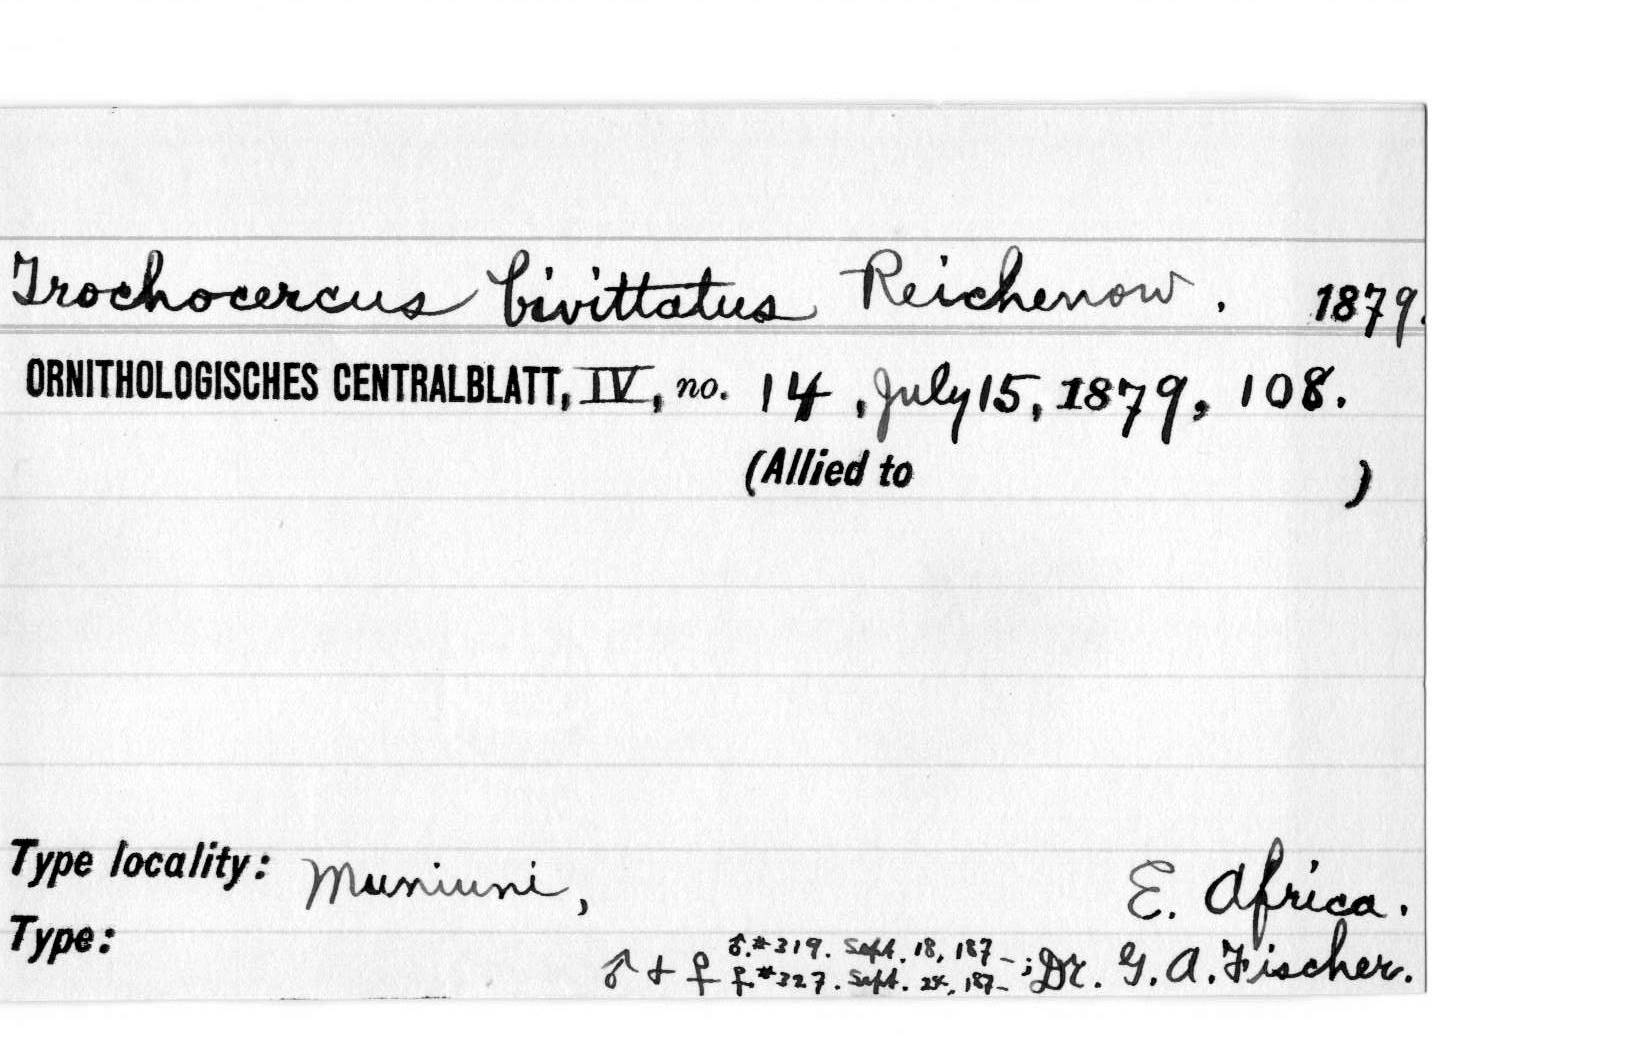 Trochocercus bivittatus Reichenow. 1879.
ORNITHOLOGISCHES CENTRALBLATT, IV, no. 14, July 15, 1879, 108.
(Allied to )
Type locality: Muniuni, E. Africa.
Type:
♂.#319. Sept. 18, 187-
♂ + ♀ ♀.#327. Sept. 24, 187- ; Dr. G. A. Fischer.